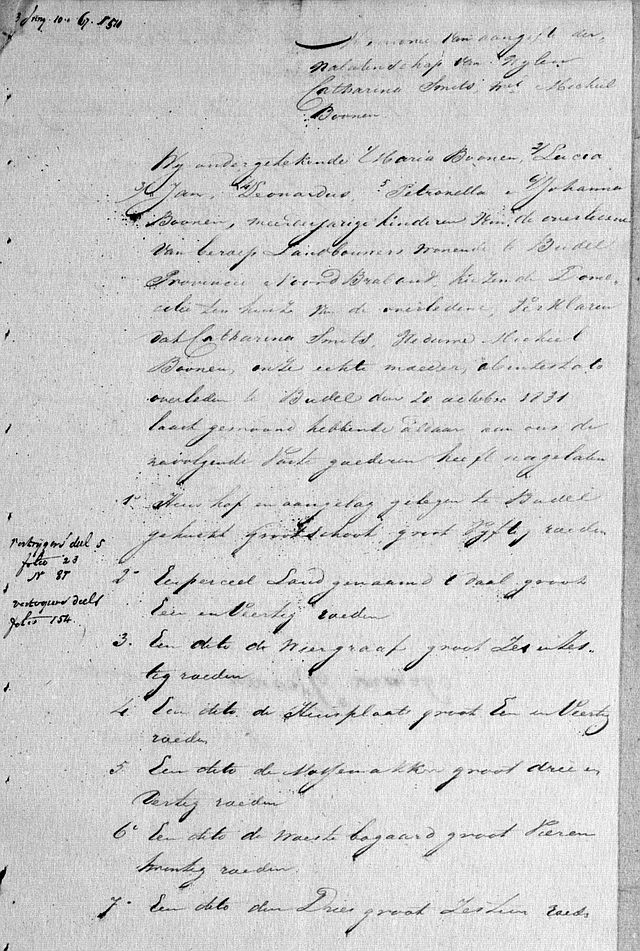 Memorie van aangifte der
Nalatenschap van Wylen
Catharina Smits, wed. Michiel
Boonen
Wy ondergetekende 1 Maria Boonen, 2 Lucia
3 Jan, 4 Leonardus, 5 Petronella en 6 Johanna
Boonen, meerderjarige kinderen van de overledene
van beroep Landbouwers wonende te Budel
Provincie Noord Braband, kiezende Dome-
cilie ten huize van de overledene, Verklaren
dat Catharina Smits, Weduwe Michiel
Boonen, onze echte moeder, abintestato
overleden te Budel den 20 october 1831
laast gewoond hebbende aldaar, aan ons de
navolgende Vaste goederen heeft nagelaten
1° Huis hof en aangelag gelegen te Budel
gehucht Grootschoot, groot Vyftig roeden
vertogers deel 5
folio 23
N° 87
vertogers deel
folio 154
2° Een perceel Land genaamd t daal groot
Een en Veertig roeden
3. Een dito de Weergraaf groot Zes en Zes-
tig roeden
4 Een dito de Huisplaats groot Een en Veertig
roeden
5. Een dito de groot drie en
Vertig roeden
6° Een dito de Woeste bogaard groot Vier en
twintig roeden
7° Een dito den Dries groot Zestien roeds